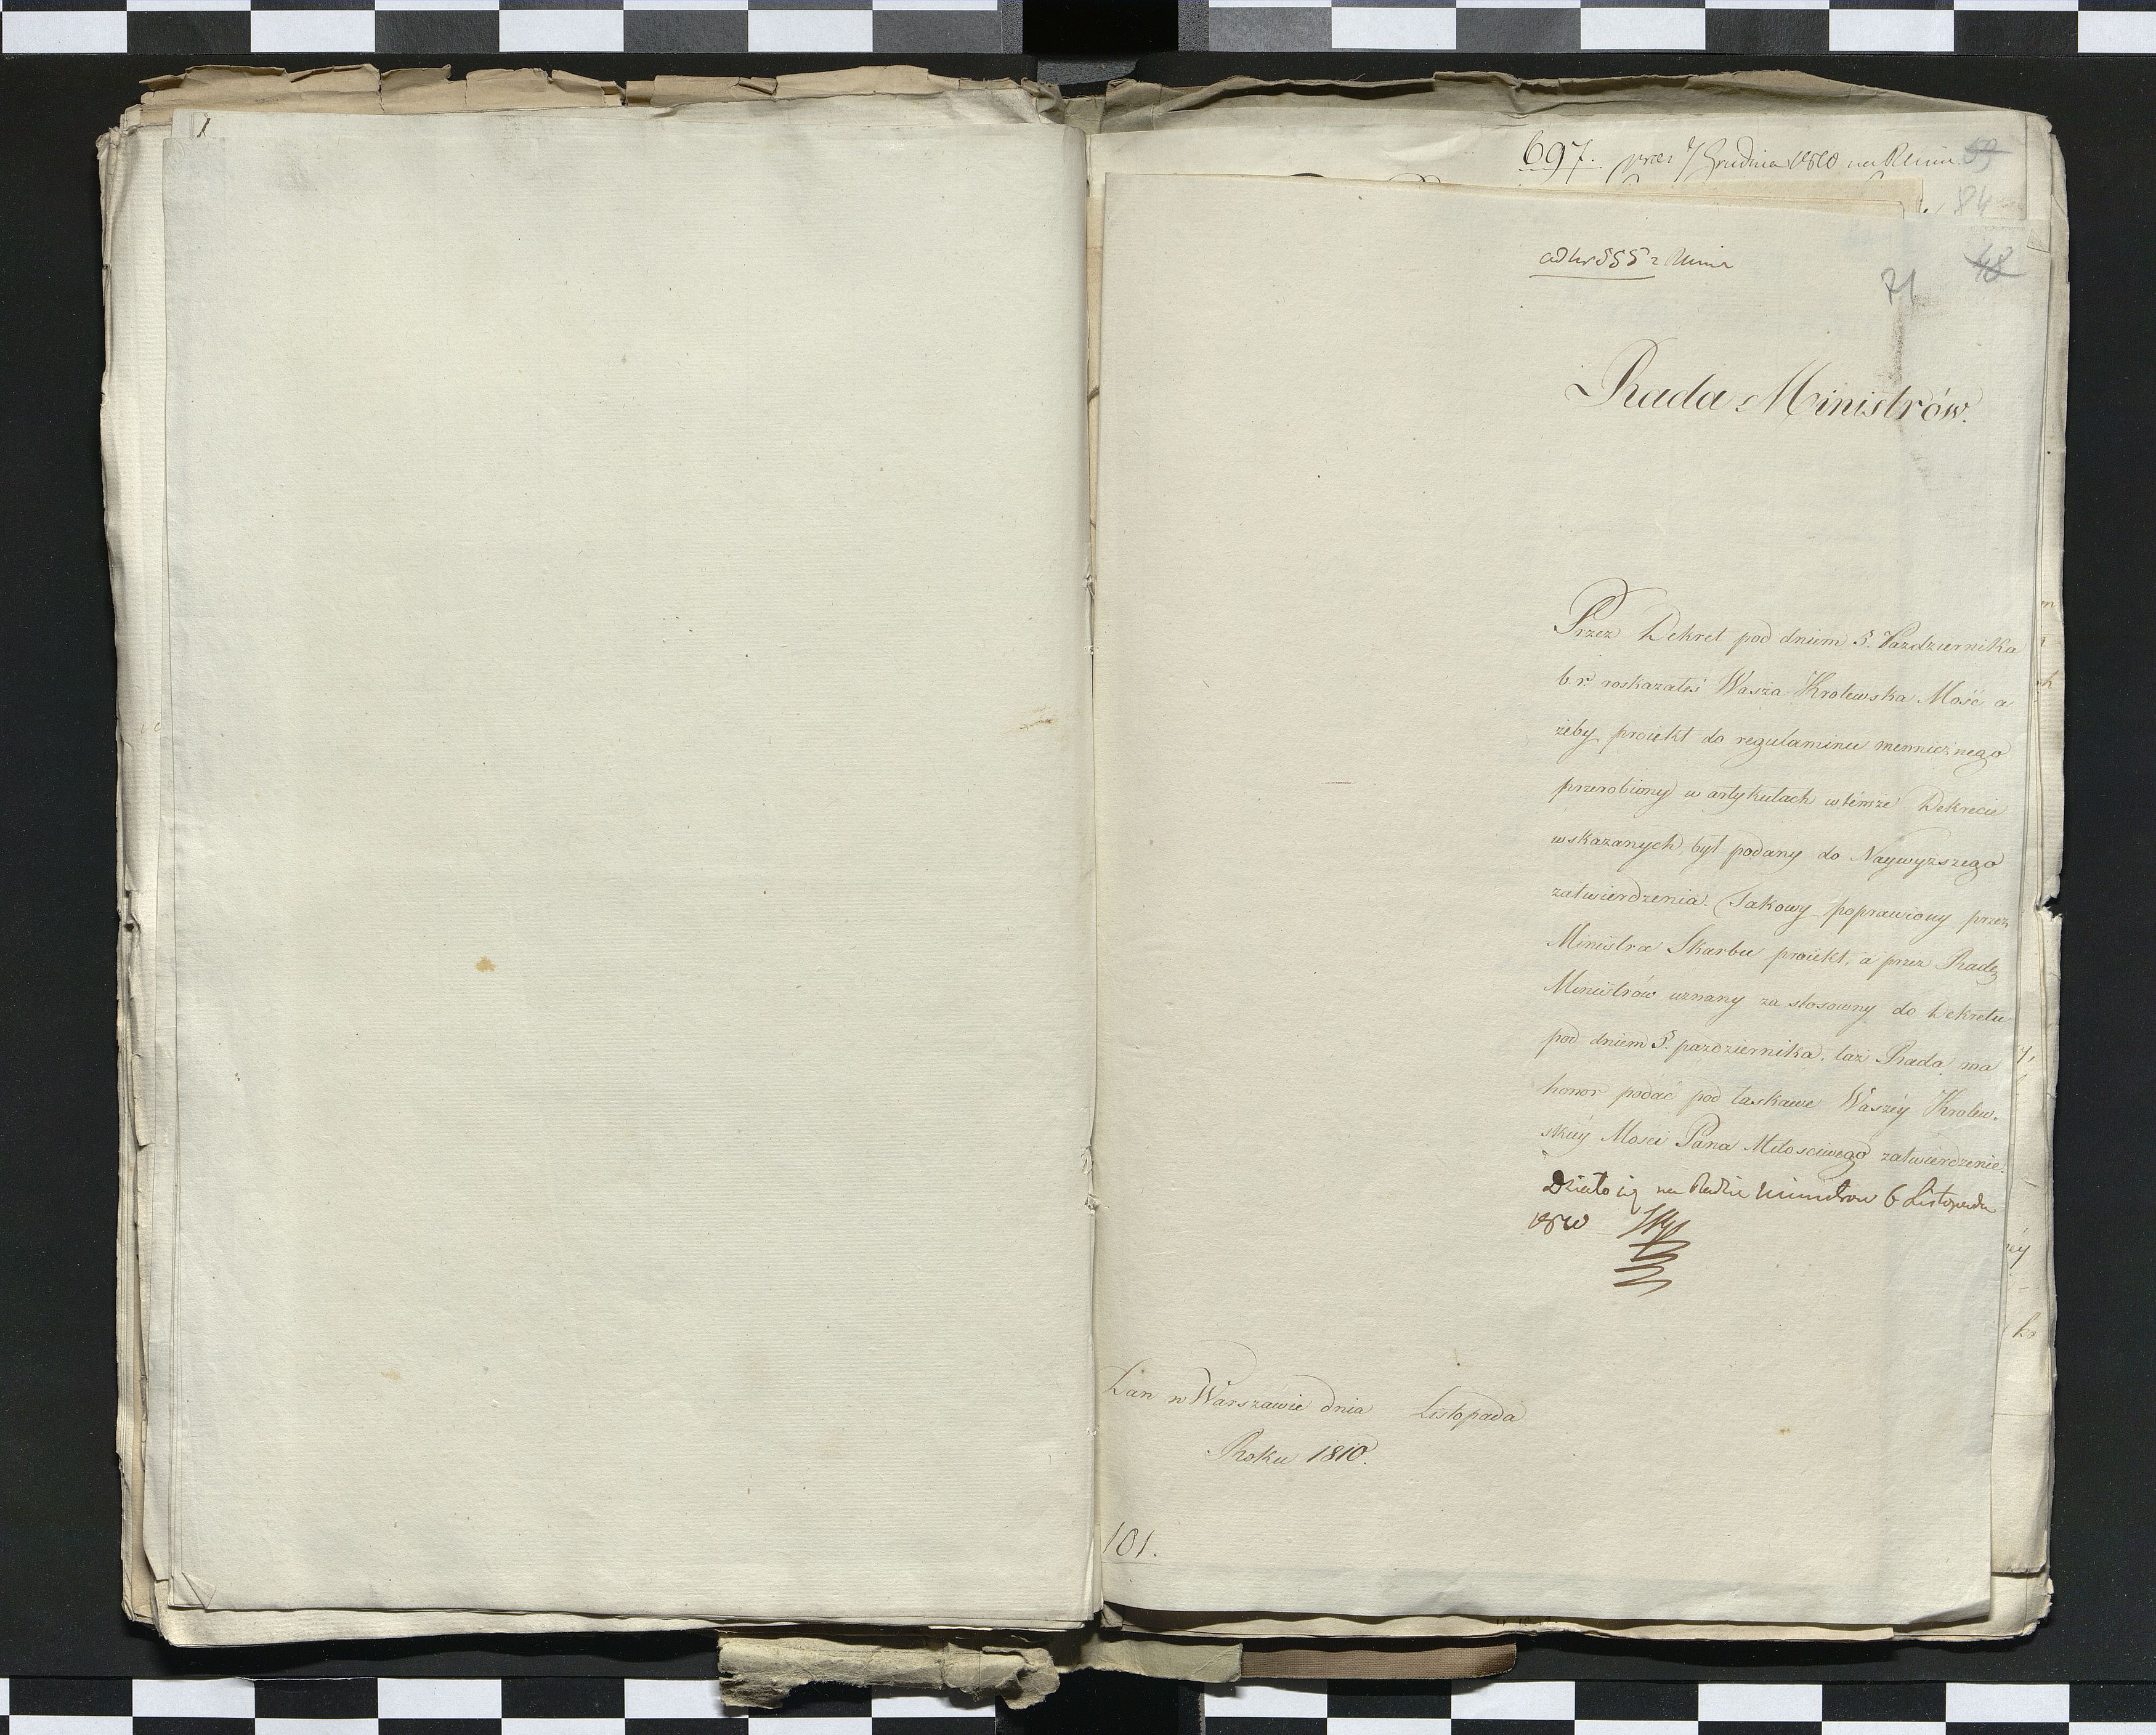 697. prez 7 Grudnia 1810 na R
59
84
48
ad Nr 555 z Minis
71
Rada Ministrów.
Przez Dekret pod dniem 5. Pazdziernika
b. r. roskazałeś Wasza Krolewska Mość a
żeby proiekt do regulaminu mennicznego
przerobiony w artykułach w témże Dekrecie
wskazanych, był podany do Naywyższego
zatwierdzenia. Takowy poprawiony przez
Ministra Skarbu proiekt, a przez Radę
Ministrów uznany za stosowny do Dekretu
pod dniem 5. pazdziernika, taż Rada ma
honor podać pod łaskawe Waszéy Krolew-
skiéy Mości Pana Miłosciwego zatwierdzenie.
Działo się na Radzie Ministrow 6 Listopada
1810
Dan w Warszawie dnia Listopada
Roku 1810.
101.